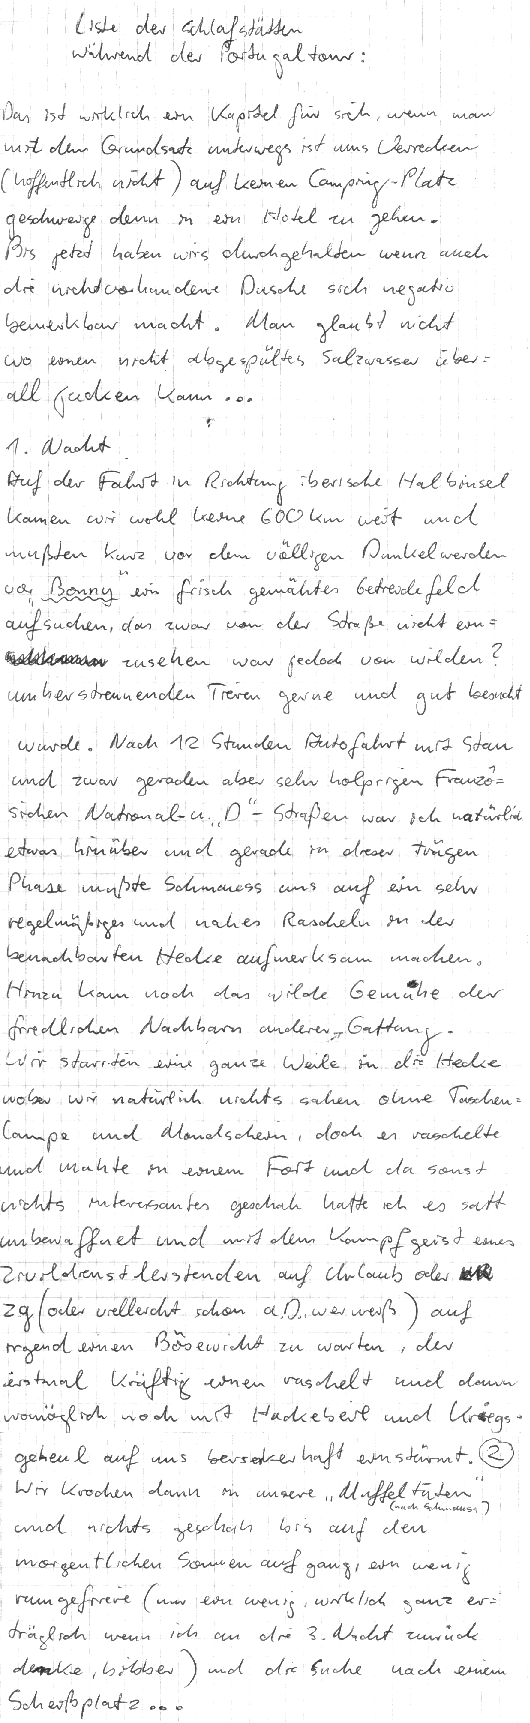 Liste der Schlafstätten
während der Portugaltour:
Das ist wirklich ein Kapitel für sich, wenn man
mit dem Grundsatz unterwegs ist ums Verrecken
(hoffentlich nicht) auf keinen Camping-Platz
geschweige denn in ein Hotel zu gehen.
Bis jetzt haben wirs durchgehalten wenn auch
die nichtvorhandene Dusche sich negativ
bemerkbar macht. Man glaubt nicht
wo einen nicht abgespültes Salzwasser über=
all jucken kann ...
1. Nacht
Auf der Fahrt in Richtung iberische Halbinsel
kamen wir wohl keine 600 km weit und
mußten kurz vor dem völligen Dunkelwerden
vor "Bonny" ein frisch gemähtes Getreidefeld
aufsuchen, das zwar von der Straße nicht ein=
zusehen war jedoch von wilden?
umherstreunenden Tieren gerne und gut besucht
wurde. Nach 12 Stunden Autofahrt mit Stau
und zwar geraden aber sehr holprigen Franzö=
sichen National- u. "D"-Straßen war ich natürlich
etwas hinüber und gerade in dieser trägen
Phase mußte Schmauess uns auf ein sehr
regelmäßiges und nahes Rascheln in der
benachbarten Hecke aufmerksam machen.
Hinzu kam noch das wilde Gemuhe der
friedlichen Nachbarn anderer Gattung.
Wir starrten eine ganze Weile in die Hecke
wobei wir natürlich nichts sahen ohne Taschen=
lampe und Mondschein, doch es raschelte
und muhte in einem Fort und da sonst
nichts interessantes geschah hatte ich es satt
unbewaffnet und mit dem Kampfgeist eines
Zivildienstleistenden auf Urlaub oder
zg (oder vielleicht schon a.D., wer weiß) auf
irgend einen Bösewicht zu warten, der
erstmal kräftig einen raschelt und dann
womöglich noch mit Hackebeil und Kriegs-
geheul auf uns berserkerhaft einstürmt. 2
Wir krochen dann in unsere "Muffeltüten"
(nach Schmauss)
und nichts geschah bis auf den
morgentlichen Sonnenaufgang, ein wenig
rumgefriere (nur ein wenig, wirklich ganz er=
träglich wenn ich an die 3. Nacht zurück
denke, bibber) und die Suche nach einem
Scheißplatz ...